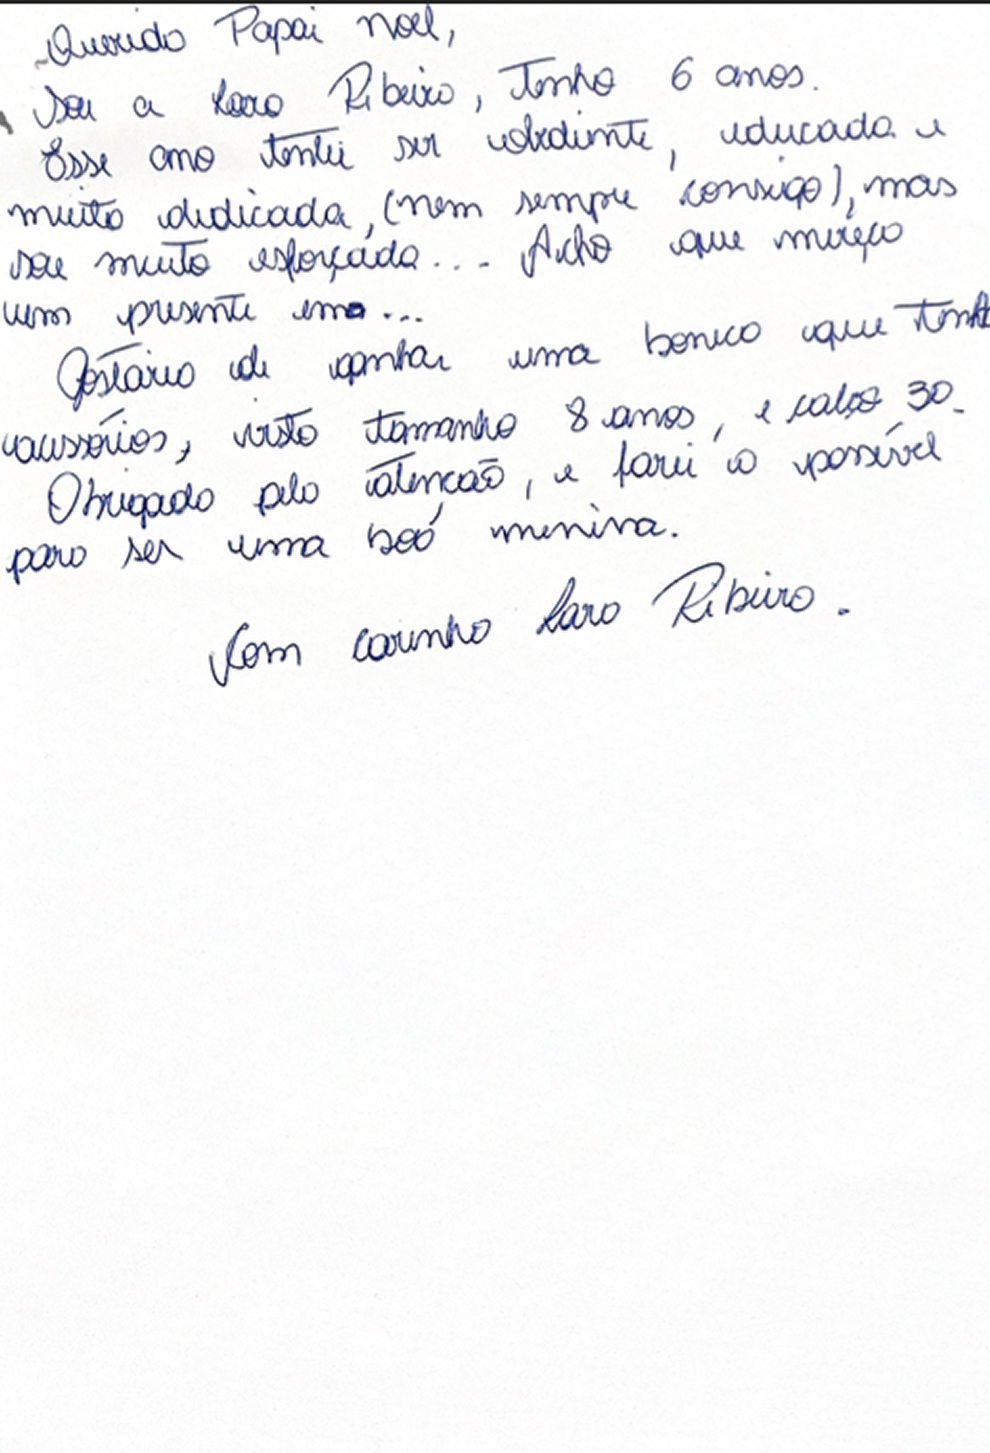 Querido Papai Noel,
Sou a Lara Ribeiro, Tenho 6 anos.
Esse ano tentei ser obediente, educada e
muito dedicada, (nem sempre consigo), mas
sou muito esforçada... Acho que mereço
um presente
Gostaria de ganhar uma boneca que tenha
acessórios, visto tamanho 8 anos, e calço 30.
Obrigado pela atenção, e farei o possível
para ser uma boá menina.
Com carinho Lara Ribeiro.